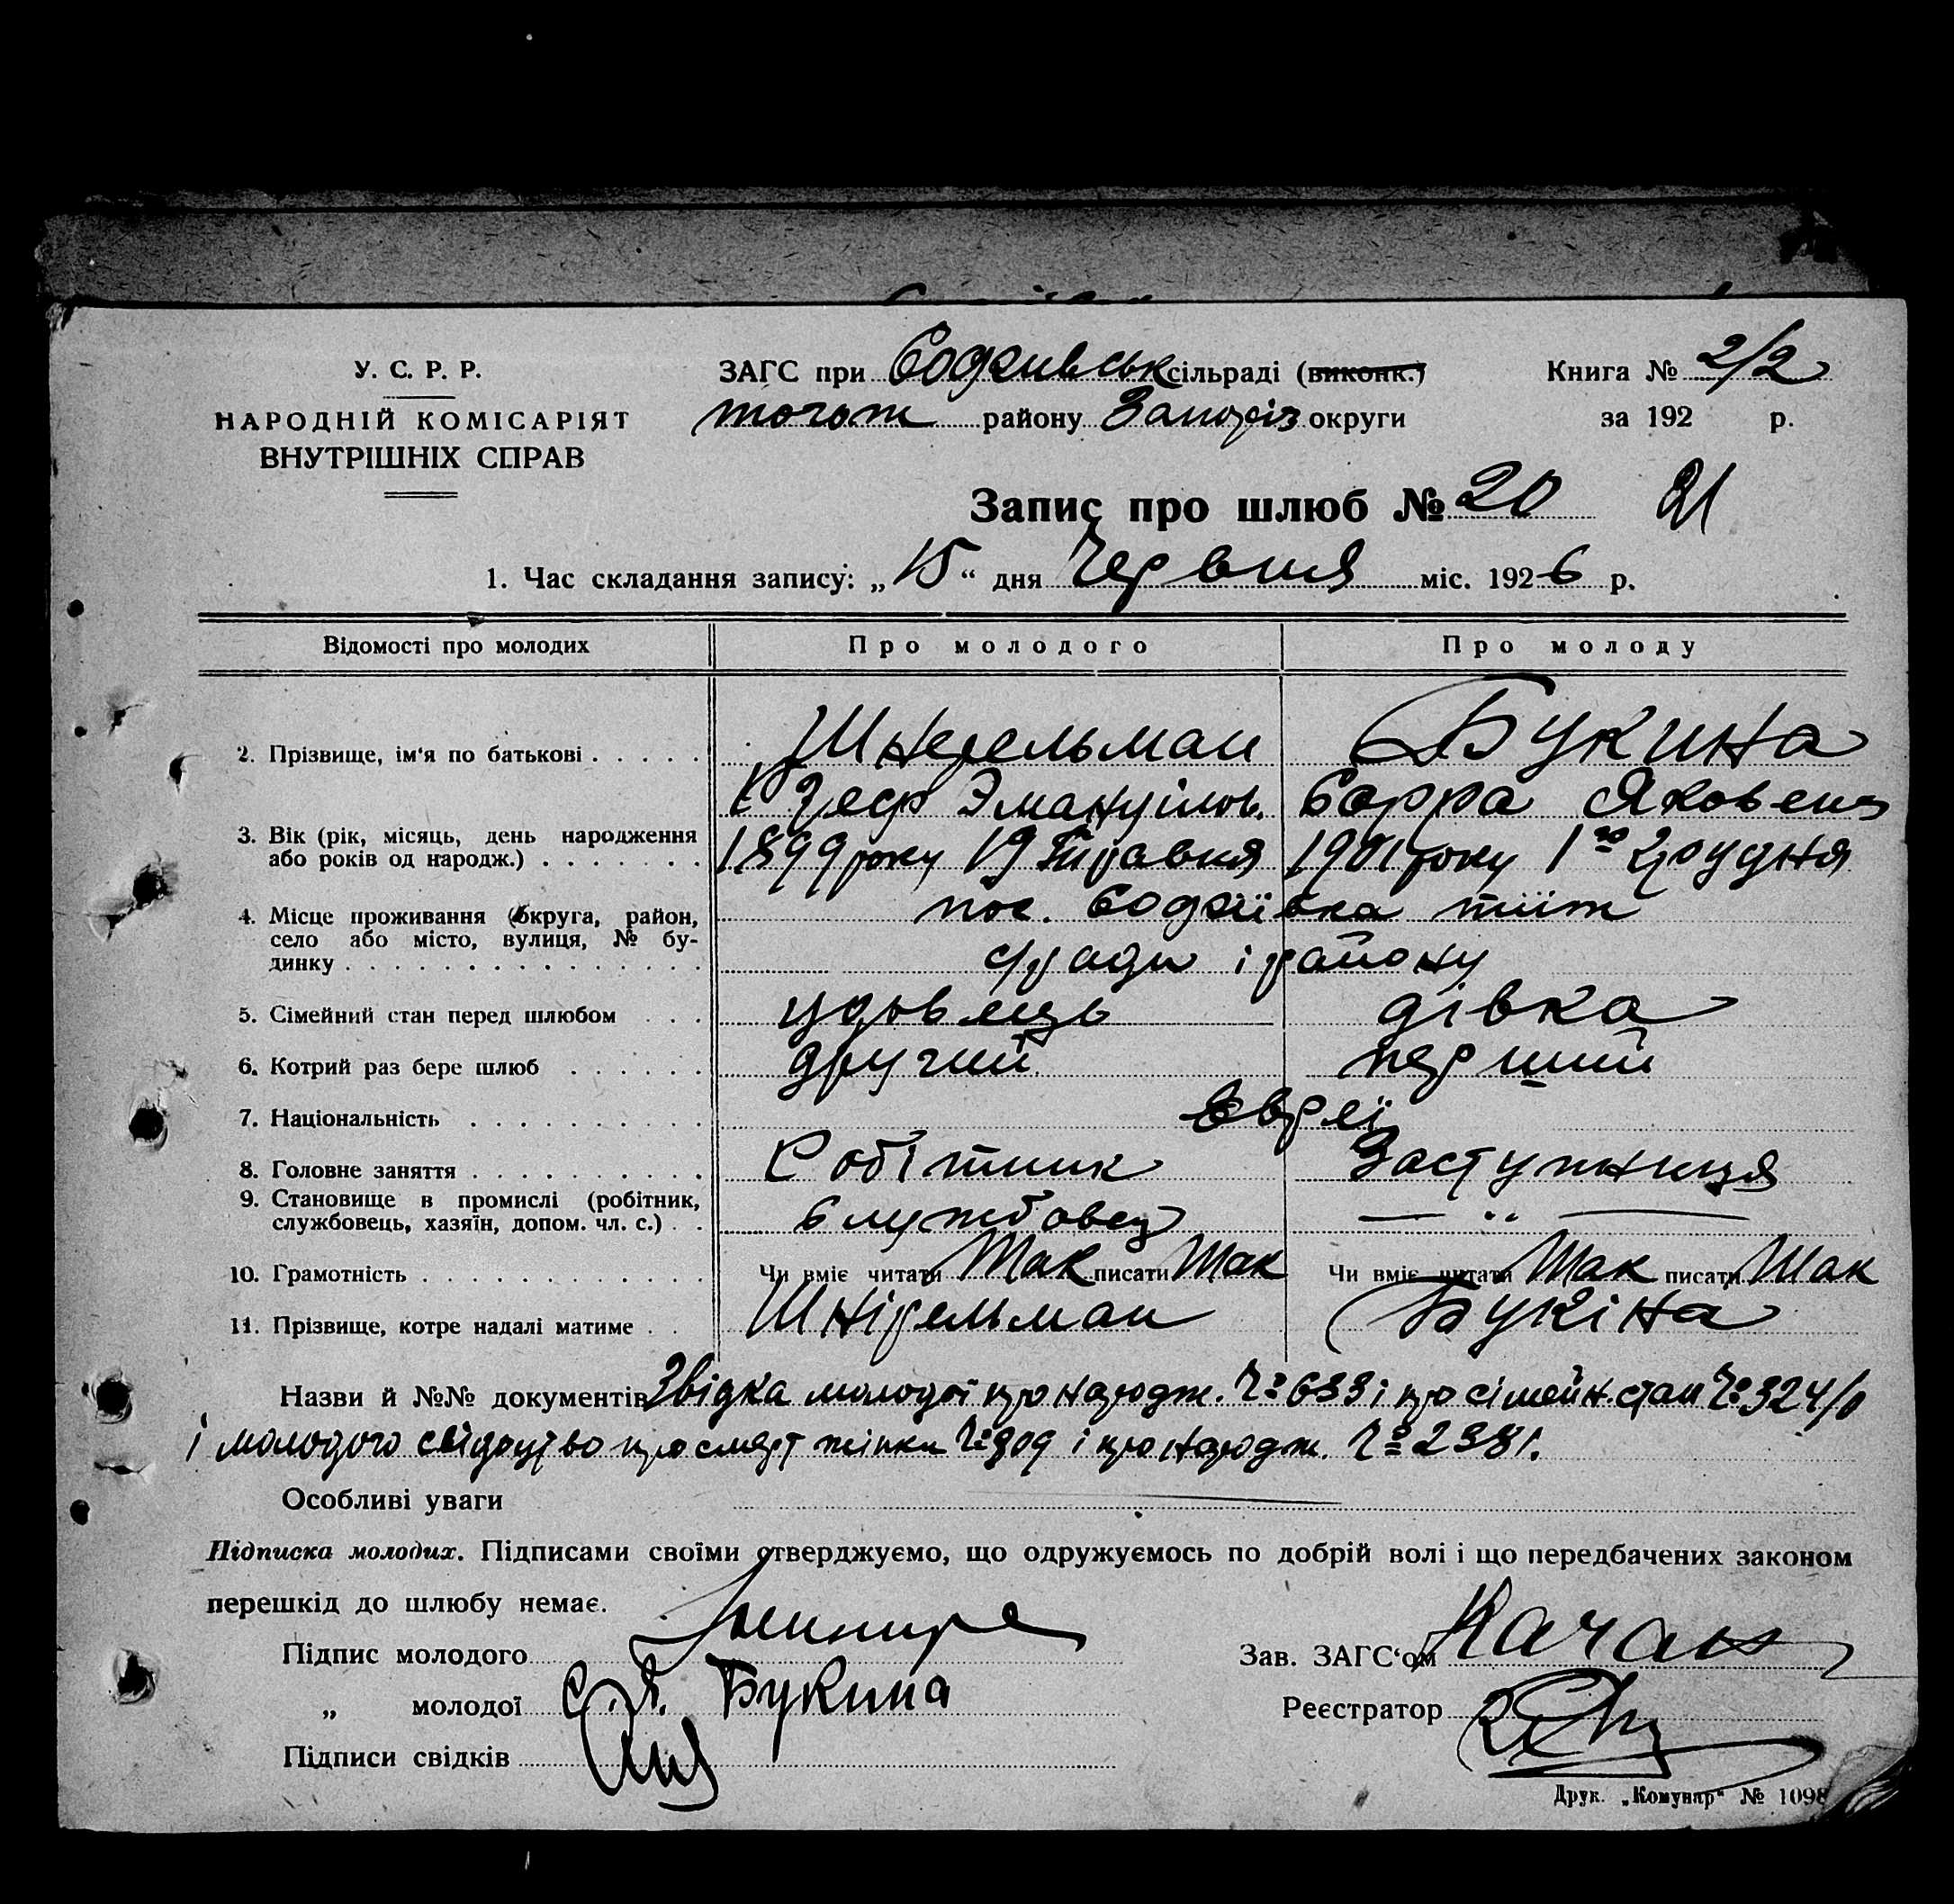 У. С. Р. Р.
НАРОДНІЙ КОМІСАРІЯТ
ВНУТРІШНІХ СПРАВ
ЗАГС при Софиивськ сільраді (виконк.)
тогож району Запоріз округи
Книга № 2/2
за 192 р.
Запис про шлюб № 20 21
1. Час складання запису: „15“ дня Червня міс. 1926 р.
Відомості про молодих Про молодого Про молоду
2. Прізвище, ім'я по батькові Шнерельман Букина
Эмануїлов. Сорра Яковенц
3. Вік (рік, місяць, день народження
або років од народж.) 1899 року 19 Травня 1901 року 1го Грудня
4. Місце проживання (округа, район, пос. Софіївка тіїж
село або місто, вулиця, № бу-
динку с/ради і району
5. Сімейний стан перед шлюбом удовець дівка
6. Котрий раз бере шлюб другий перший
7. Національність Євреї
8. Головне заняття Робітник Заступниця
9. Становище в промислі (робітник,
службовець, хазяїн, допом. чл. с.) Службовец — „ —
10. Грамотність Чи вміє читати Так писати Так Чи вміє читати Так писати Так
11. Прізвище, котре надалі матиме Шнірельман Букіна
Назви й №№ документів Звідка молодої про народж. Ч° 633 і про сімейн. стан Ч° 324/0
і молодого свідоцтво про смерт жінки Ч° 809 і про народж. Ч° 2381.
Особливі уваги
Підписка молодих. Підписами своїми стверджуємо, що одружуємось по добрій волі і що передбачених законом
перешкід до шлюбу немає.
Підпис молодого
„ молодої С. Я. Букина
Підписи свідків
Зав. ЗАГС'ом Качан
Реєстратор
Друк. „Комунар“ № 1098